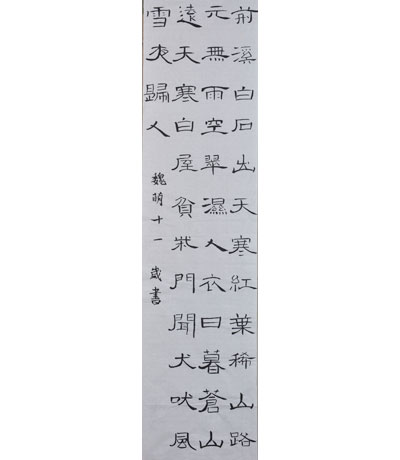 前溪白石出天寒紅葉稀山路
元無雨空翠濕人衣日暮蒼山
遠天寒白屋貧柴門聞犬吠風
雪夜歸人
魏明十一歲書